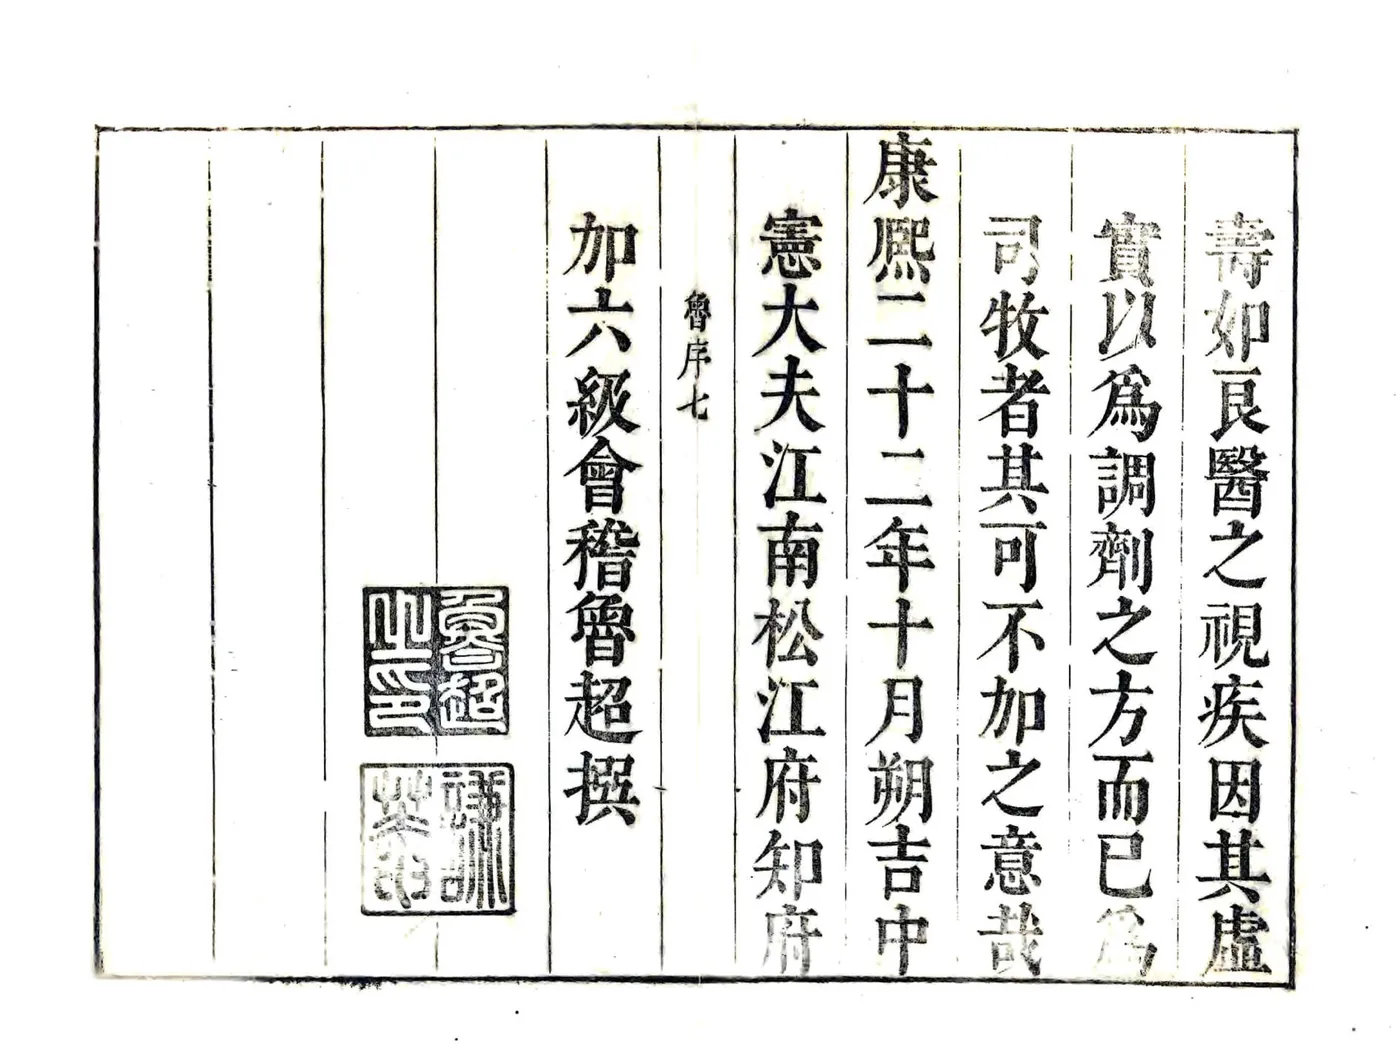 壽如良醫之視疾因其虛
實以為調劑之方而已為
司牧者其可不加之意哉
康熈二十二年十月朔吉中
憲大夫江南松江府知府
魯序七
加六級會稽魯超撰
魯超之印
謙菴